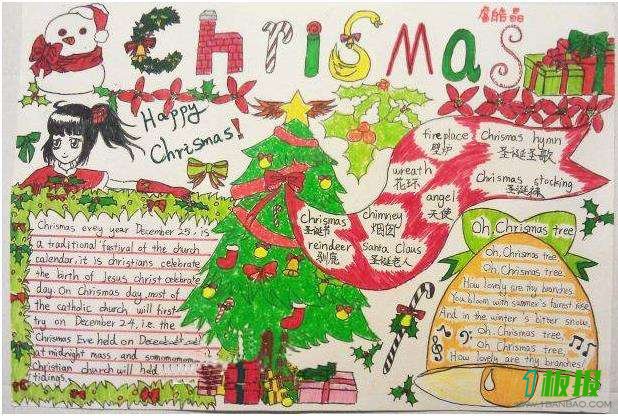 詹皓晶
Chrismas
Happy
Chrismas!
fireplace
壁炉
Chrismas hymn
圣诞圣歌
wreath
花环
Chrismas stocking
圣诞袜
angel
天使
Chrismas
圣诞节
chimney
烟囱
reindeer
驯鹿
Santa Claus
圣诞老人
Chrismas evey year December 25, is
a traditional fastival of the church
calendar, it is christians celebrate
the birth of Jesus christ celebrate
day. On Chrismas day, most of
the catholic church will first
try on December 24, i.e. the
Chrismas Eve held on December
at midnight mass, and some
Christian church will held
tidings.
Oh, Chrismas tree
Oh, Chrismas tree
Oh Chrismas tree
How lovely are thy branches
You bloom with summer's fairest rose
And in the winter's bitter snow,
Oh. Chrismas tree,
Oh Chrismas tree,
How lovely are thy branches!
板报
WWW.1BANBAO.COM